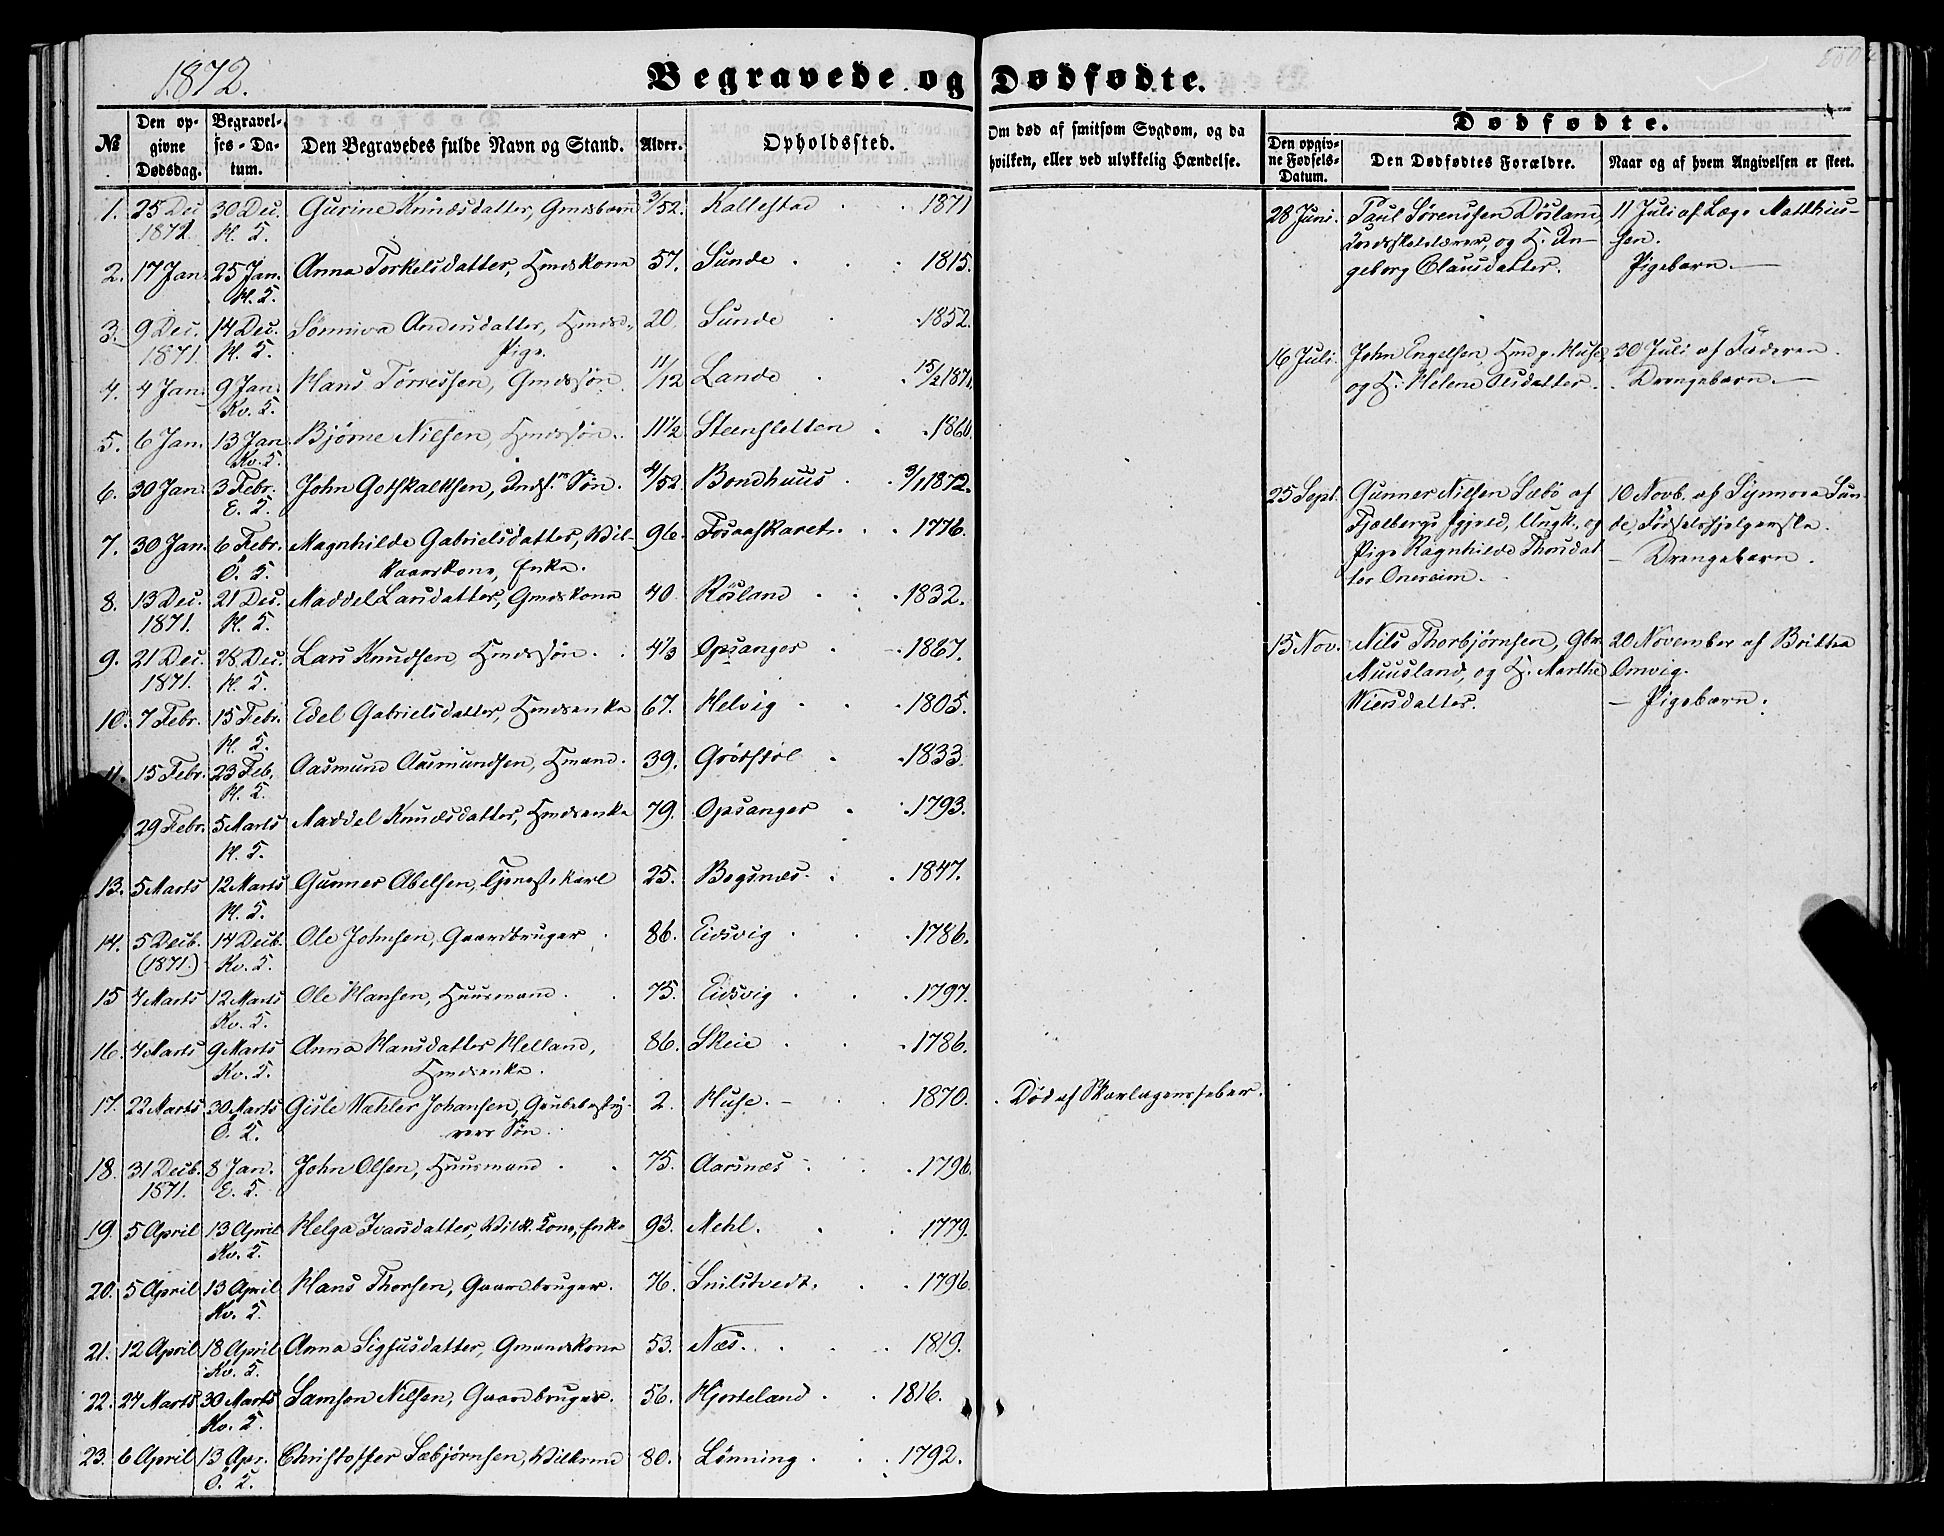 1872.
Begravede og Dødfødte.
№
Den opgivne Dødsdag.
Begravelses-Datum.
Den Begravedes fulde Navn og Stand.
Alder.
Opholdssted.
Om død af smitsom Sygdom, og da hvilken, eller ved ulykkelig Hændelse.
Dødfødte.
Den opgivne Fødsels-Datum.
Den Dødfødtes Forældre.
Naar og af hvem Angivelsen er skeet.
1. 25 Dec 30 Dec. Gurine Knudsdatter, Gmdsbarn 3/52. Kallestad 1871
187 H. K.
2. 17 Jan. 25 Jan. Anna Torkelsdatter, Hmdskone 57. Sunde 1815.
H. K.
3. 9 Dec. 14 Dec. Sønniva Andersdatter, Hmds- 20. Sunde 1852.
1871. H. K. Pige.
4. 4 Jan. 9 Jan. Hans Tørresen, Gmdssøn 11/12 Lande 15/2 1871.
Kv. K.
5. 6 Jan. 13 Jan. Bjørne Nilsen, Hmdssøn. 11 1/2 Steensletten 1860.
Kv. K.
6. 30 Jan. 3 Febr. John Gotskalksen, Indst. Søn. 4/52 Bondhuus 3/1 1872.
E. K.
7. 30 Jan. 6 Febr. Magnhilde Gabrielsdatter, Vil- 96. 1776.
Ø. K. kaarskone, Enke.
8. 13 Dec. 21 Dec. Maddel Larsdatter, Gmdskone 40. Røsland 1832.
1871. H. K.
9. 21 Dec. 28 Dec. Lars Knudsen, Hmdssøn. 4 1/3 Opsanger 1867.
1871. H. K.
10. 7 Febr. 15 Febr. Edel Gabrielsdatter, Hmdsenke 67. Helvig 1805.
H. K.
11. 15 Febr. 23 Feb. Aasmund Aasmundsen, Hmand. 39. Grødstøl 1833.
H. K.
29 Febr. 5 Marts Maddel Knudsdatter, Hmdsenke 79. Opsanger 1793.
H. K.
13. 5 Marts 12 Marts Gunner Abelsen, Tjenestekarl 25. Bogsnæs. 1847.
H. K.
14. 5 Decb. 14 Decb. Ole Johnsen, Gaardbruger 86. Eidsvig 1786.
(1871.) Kv. K.
15 4 Marts 12 Marts Ole Hansen, Huusmand. 75. Eidsvig 1797.
Kv. K.
16. 4 Marts 9 Marts Anna Hansdatter Helland, 86. Skeie 1786.
Kv. K. Hmdsenke.
17. 22 Marts 30 Marts Gisle Wæhler Johansen, Grubebesty- 2. Huse. 1870. Død af Skarlagensfeber.
Ø. K. rers Søn.
18. 31 Decb. 8 Jan. John Olsen, Huusmand 75. Aarsnæs 1796.
1871. E. K.
19. 5 April 13 April Helga Ivarsdatter, Vilk. Kone, Enke 93. Mehl. 1779.
Kv. K.
20. 5 April 13 April Hans Thorsen, Gaardbruger. 76. Snilstvedt. 1796.
Kv. K.
21. 12 April 18 April Anna Sigfusdatter, Gmandskone 53. Næs. 1819.
Kv. K.
22. 24 Marts 30 Marts Samson Nilsen, Gaardbruger. 56. Hjorteland 1816.
Kv. K.
23. 6 April 13 Apr. Christoffer Sæbjørnsen, Vilkrmd 80. Lønning 1792.
Ø. K.
28 Juni. Paul Sørensen Døsland, 11 Juli af Læge Matthie-
Landsskolelærer, og H. In- sen.
geborg Clausdatter. Pigebarn.
16 Juli. John Engelsen, Hmd p. Huse 30 Juli af Faderen.
og H. Helene Olsdatter. Drengebarn.
25 Sept. Gunner Nilsen Sæbø af 10 Novb. af Synnova Sun-
Fjælbergs Pgjæld, Ungk., og de, Fødselshjælperske.
Pige Ragnhilde Thorsdat- Drengebarn.
ter Onereim.
15 Nov. Nils Thorbjørnsen, Gbr. 20 November af Brithe
Muusland, og H. Marthe Omvig.
Niersdatter. Pigebarn.